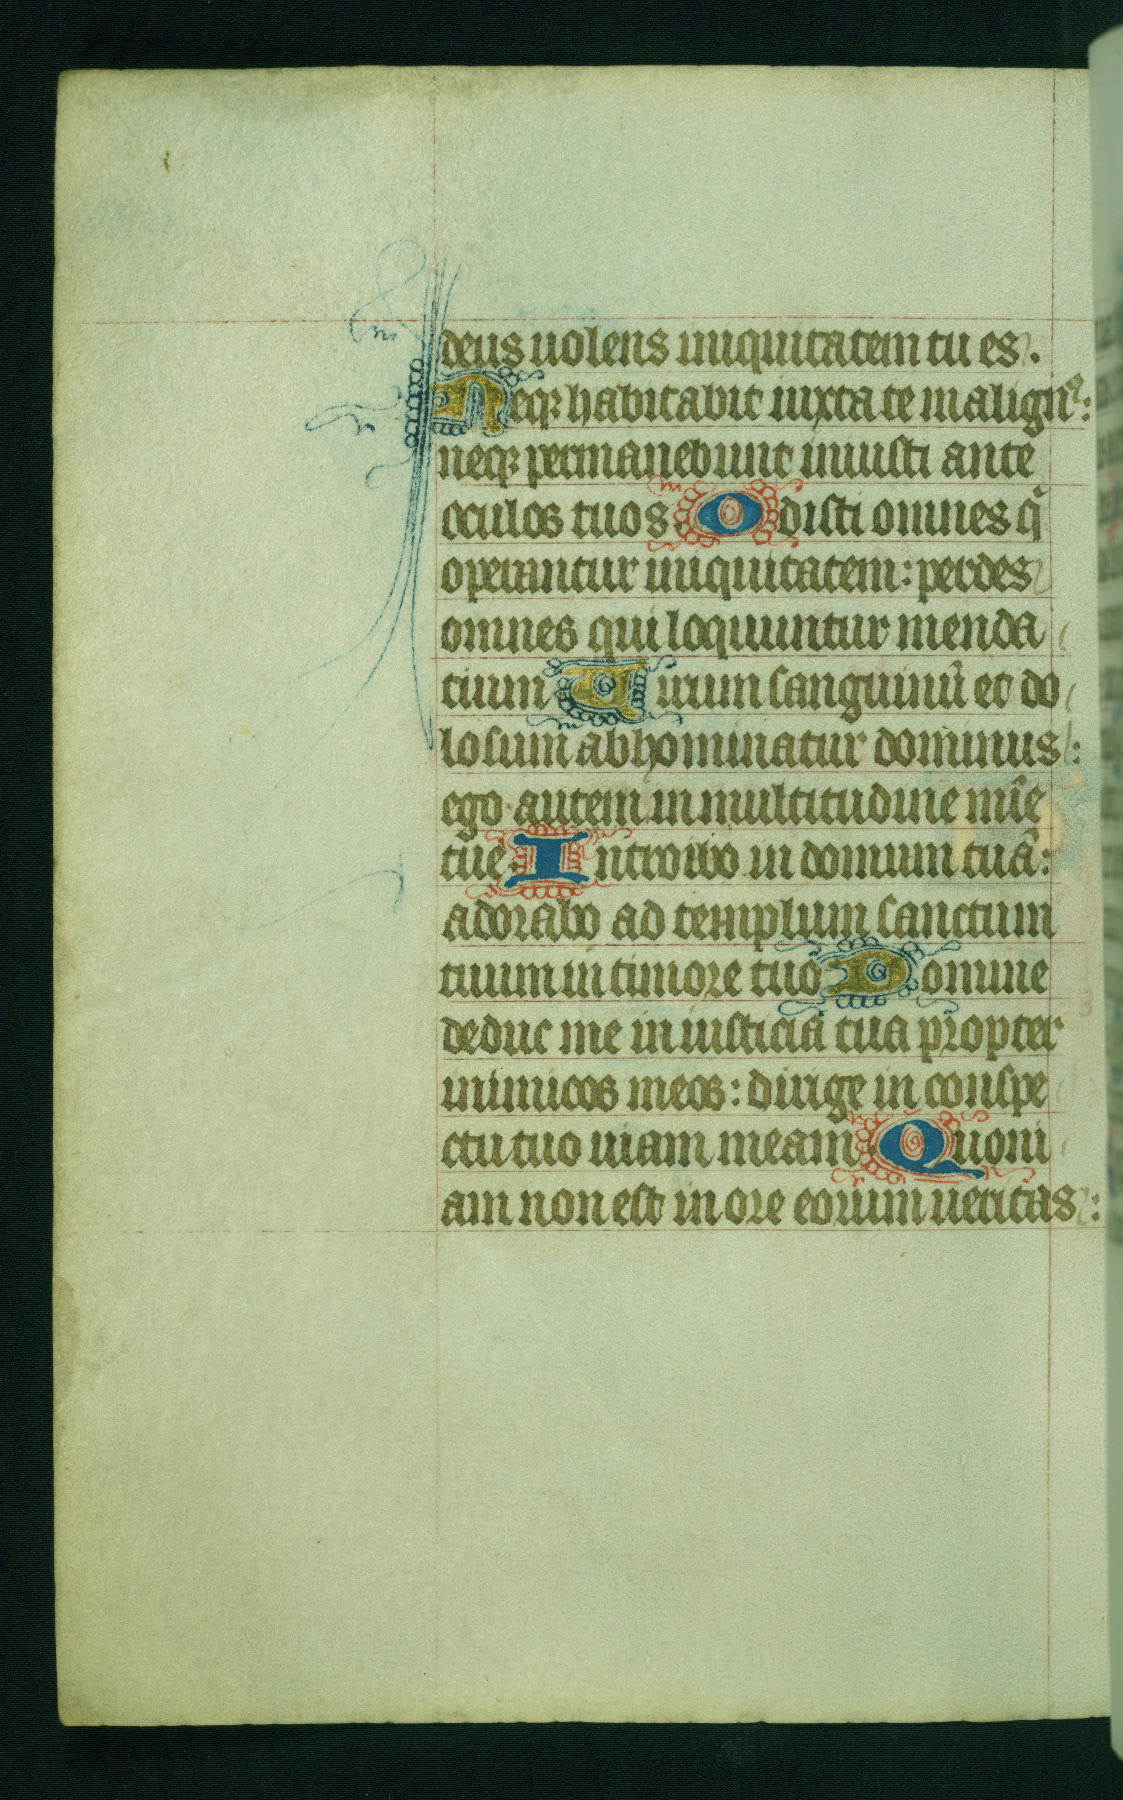 deus uolens iniquitatem tu es.
Neqꝫ habitabit iuxta te malignꝰ:
neqꝫ permanebunt iniusti ante
oculos tuos. Odisti omnes q̇
operantur iniquitatem: perdes
omnes qui loquuntur menda
cium Uirum sanguinū et do
losum abhominatur dominus:
ego autem in multitudine mīe
tue Introibo in domum tuā:
adorabo ad templum sanctum
tuum in timore tuo Domine
deduc me in iusticia tua propter
inimicos meos: dirige in conspe
ctu tuo uiam meam Quoni
am non est in ore eorum ueritas: